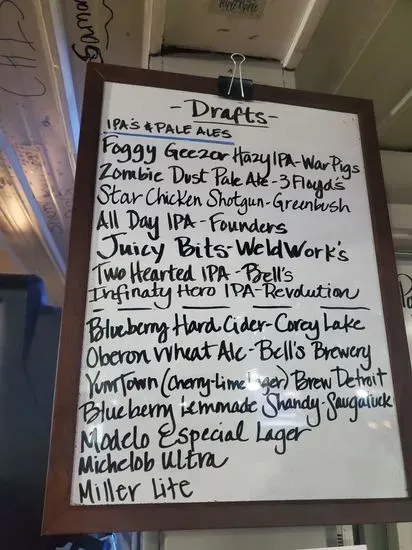 -Drafts-
IPA'S & PALE ALES
Foggy Geezer Hazy IPA-War Pigs
Zombie Dust Pale Ale-3 Floyd's
Star Chicken Shotgun-Greenbush
All Day IPA-Founders
Juicy Bits-WeldWork's
Two Hearted IPA-Bell's
Infinaty Hero IPA-Revolution
Blueberry Hard Cider-Corey Lake
Oberon Wheat Ale-Bell's Brewery
YumTown (Cherry-Lime lager) Brew Detroit
Blueberry Lemonade Shandy-Saugatuck
Modelo Especial Lager
Michelob Ultra
Miller Lite